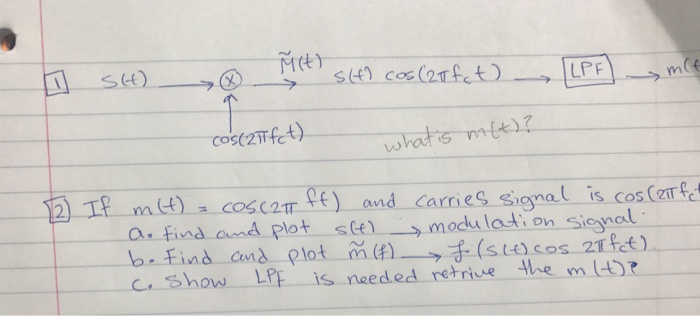 M̃(t)
1 s(t) → ⊗ → s(t) cos(2πfct) → LPF → m(t
cos(2πfct)
what's m(t)?
2 If m(t) = cos(2π ft) and carries signal is cos(2πfct
a. find and plot s(t) → modulation signal.
b. Find and plot m̃(f) → f(s(t) cos 2πfct).
c. Show LPF is needed retrive the m(t)?